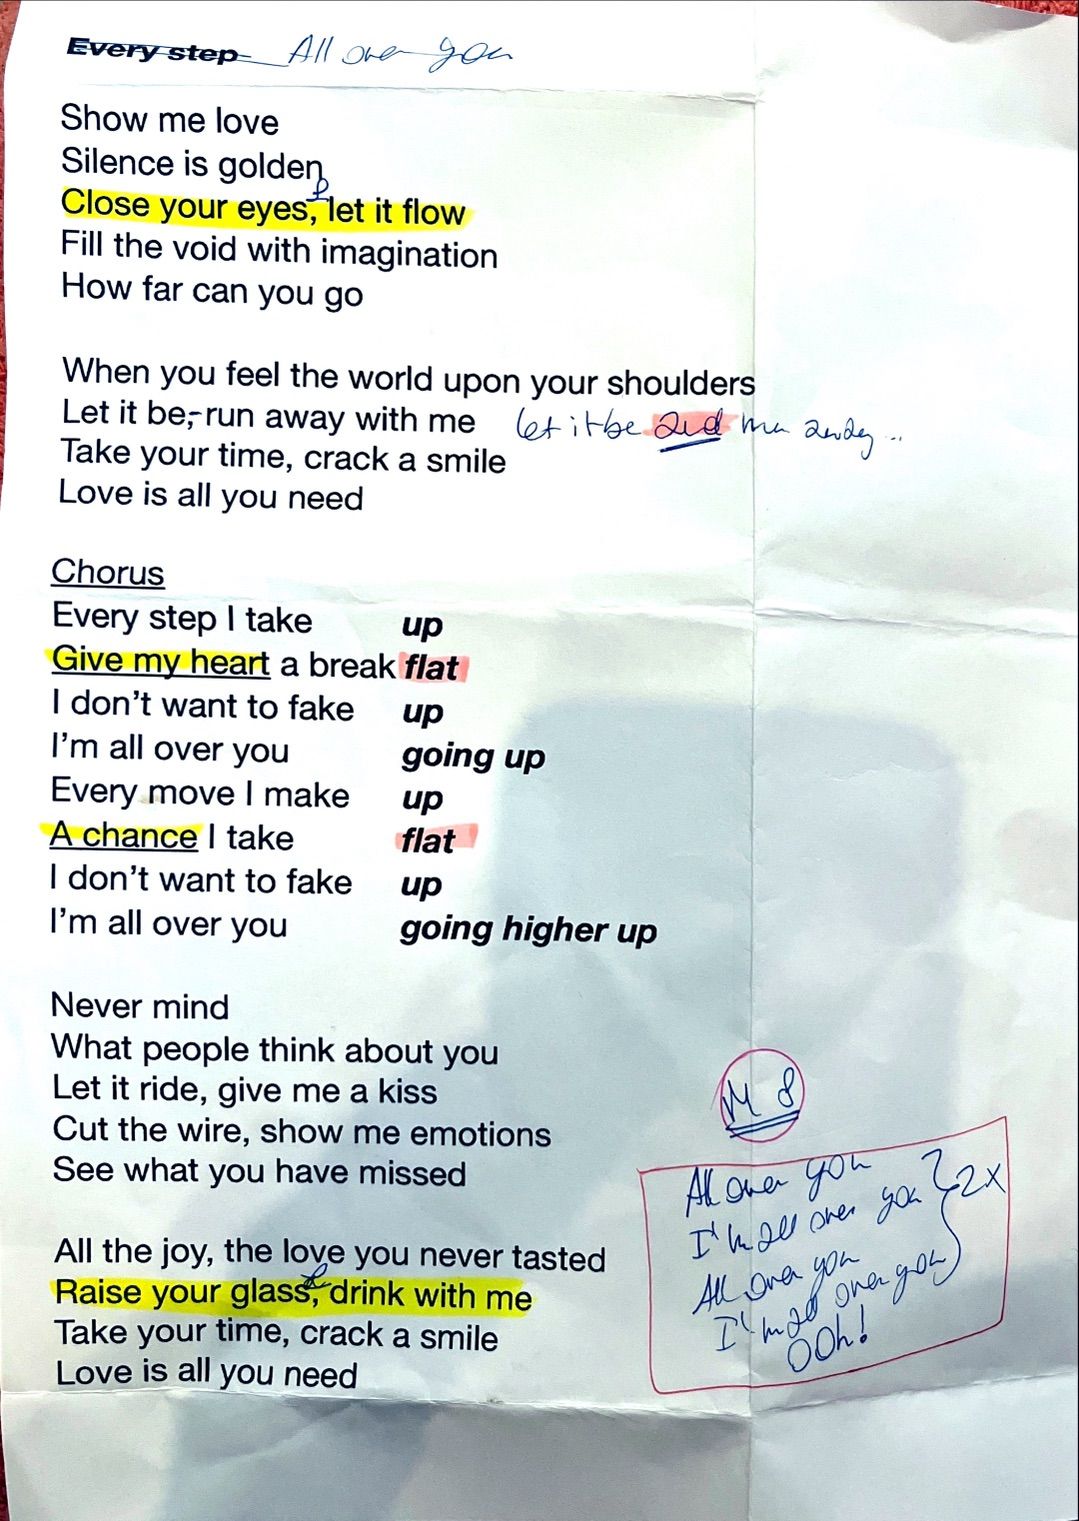 Every step All over you
Show me love
Silence is golden
Close your eyes, let it flow
Fill the void with imagination
How far can you go
When you feel the world upon your shoulders
Let it be, run away with me let it be and run away...
Take your time, crack a smile
Love is all you need
Chorus
Every step I take up
Give my heart a break flat
I don't want to fake up
I'm all over you going up
Every move I make up
A chance I take flat
I don't want to fake up
I'm all over you going higher up
Never mind
What people think about you
Let it ride, give me a kiss
Cut the wire, show me emotions
See what you have missed
All the joy, the love you never tasted
Raise your glass, drink with me
Take your time, crack a smile
Love is all you need
M 8
All over you
I'm all over you 2x
All over you
I'm all over you
OOh!